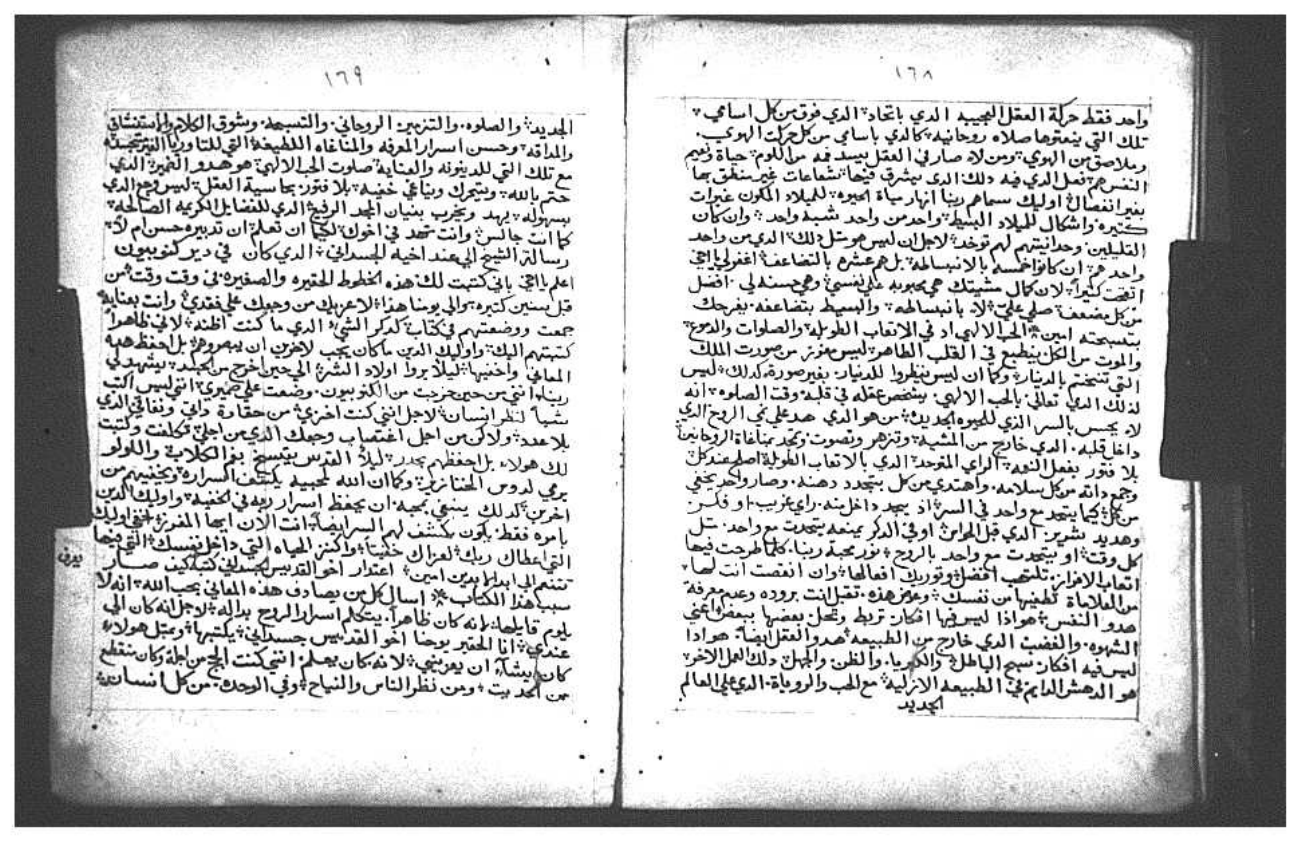 ١٦٨
واحد فقط حركة العقل العجيبه الدي باتحاد الدي فوق من كل اسامي
تلك التي ينعتوها صلاه روحانيه كالدي باسامي من كل حركت الهوي
وملاصق من الهوي ومن لا صار في العقل ليسد فمه من اللوم حياة ونعيم
النفس هم فعل الدي فيه دلك الدي يشرق فيها شعاعات غير منطق بها
بغير انفصال اوليك سماهم ربنا انهار مياة الحيوه للميلاد المكون غيرات
كتيره واشكال للميلاد البسيط واحد من واحد شبه واحد وان كان
القليلين وحدانيتهم لهم توخد لاجل ان ليس هو متل دلك الدي من واحد
واحد هم ان كانوا خمسه بالانبساط بل هم عشره بالتضاعف اغفر لي يا اخي
كثيراً لان كمال مشيتك هي محبوبه علي نفسي وهي حسنه لي افضل
من كل بضعف صلي علي لا بانبساطه والبسيط بتضاعفه بفرحك
بتسبحته امين الحب الالهي اد في الاتعاب الطويله والصلوات والدموع
والموت من الكل ينطبع في القلب الطاهر ليس مفرز من صورت الملك
التي تنختم بالدينار وكما ان ليس ينظروا للدينار بغير صورة كدلك ليس
لدلك الدي تعالي بالحب الالهي يشخص عقله في قلبه وقت الصلوه انه
لا يحسن بالسر الذي للحيوه الجديده من هو الدي هد علي فمي الروح الدي
داخل قلبه الدي خارج من المشيه وتزهر وتصوت وتحد بمناغاة الروحانيين
بلا فتور بفعل النعمه الراي المتوحد الدي بالاتعاب الطويله اصلح عند كل
وجمع داته من كل سلامه واهتدي من كل بتجدد دهنه وصار واحد يخفي
من كل كيما يتحد مع واحد في السر اد يجد داخل منه راي غريب او فكر
وهديد شرير الدي قبل الحواس او في الدكر يمنعه يتحدت مع واحد تل
كل وقت او يتحدت مع واحد بالروح نور محبة ربنا كلما طرحت فيها
اتعاب الافراز تلتهب افضل وتوريك افعالها وان انقصت انت لها
من العلامات تطفيها من نفسك وعوض هده تقبل انت بروده وعدم معرفة
هدو النفس هو ادا ليس فيها افكار تربط وتحل بعضها ببعض اعني
الشهوه والغضب الدي خارج من الطبيعه هدو العقل ايضاً هو ادا
ليس فيه افكار سبح الباطل والكبريا والظن والجهل دلك العمل الاخر
هو الدهش الدايم في الطبيعه الازليه مع الحب والروياة الدي علي العالم
الجديد
١٦٩
الجديد والصلوه والتزمير الروحاني والتسبحه وشوق الكلام والاستنشاق
والمداقه وحسن اسرار المعرفه والمناغاه اللطيفه التي للتاوريا الغير متجسده
مع تلك التي للدينونه والعنايه صلوت الحب الالهي هو هدو الضمير الدي
ختم بالله ويتحرك ويناغي خفيه بلا فتور بحاسية العقل ليس وجع الدي
بسهوله يهد ويخرب بنيان المجد الرفيع الدي للفضايل الكريمه الصالحه
كما انت جالس وانت تهد في اخوك لكيما ان تعلم ان تدبيره حسن ام لا
رسالة الشيخ الي عند اخيه الجسداني الدي كان في دير كنوبيون
اعلم يا اخي باني كتبت لك هده الخطوط الحقيره والصغيره في وقت وقت من
قبل سنين كتيره والي يومنا هدا لاعزيك من وجعك علي فقدي وانت بعنايه
جمعت ووضعتهم في كتاب كدكر الشي الدي ما كنت اظنه لاني ظاهراً
كتبتهم اليك واوليك الدين ما كان يجب لاخرين ان يبصروهم بل احفظ هده
المعاني واخفيها ليلا يروا اولاد الشر الي حين اخرج من الجسد يشهد لي
ربنا انني من حين خرجت من الكنوبيون وضعت علي ضميري اني ليس اكتب
شياً لنظر انسان لاجل انني كنت اخزي من حقارة داتي ونفاقي الدي
بلا عدد ولاكن من اجل اغتصاب وجعك الدي من اجلي تكلفت وكتبت
لك هولاء بل احفظهم بحدر ليلا القدس يتسخ بفم الكلاب واللولو
يرمي لدوس الخنازير وكما ان الله لمحبيه يكشف اسراره ويخفيهم من
اخرين كدلك ينبغي لمحبه ان يحفظ اسرار ربه في الخفيه واوليك الدين
بامره فقط يكون يكشف لهم السر ايضاً انت الان ايها المفرز اخفي اوليك
التي اعطاك ربك لعزاك خفياً واكنز الحياه التي داخل نفسك التي فيها
تتنعم الي ابد الابدين امين اعتدار اخو القديس الجسداني كتبه كيف صار
سبب هذا الكتاب اسال كل من يصادف هده المعاني بحب الله انه لا
يلوم قايلها بانه كان ظاهراً يتكلم اسرار الروح بداله لاجل انه كان الي
عندي انا الحقير يوحنا اخو القديس جسداني يكتبها ومتل هولاء
كان يشاء ان يعزيني لانه كان يعلم انني كنت الج من اجله وكان منقطع
من الحديت ومن نظر الناس والنياح وفي الوحده من كل انسان